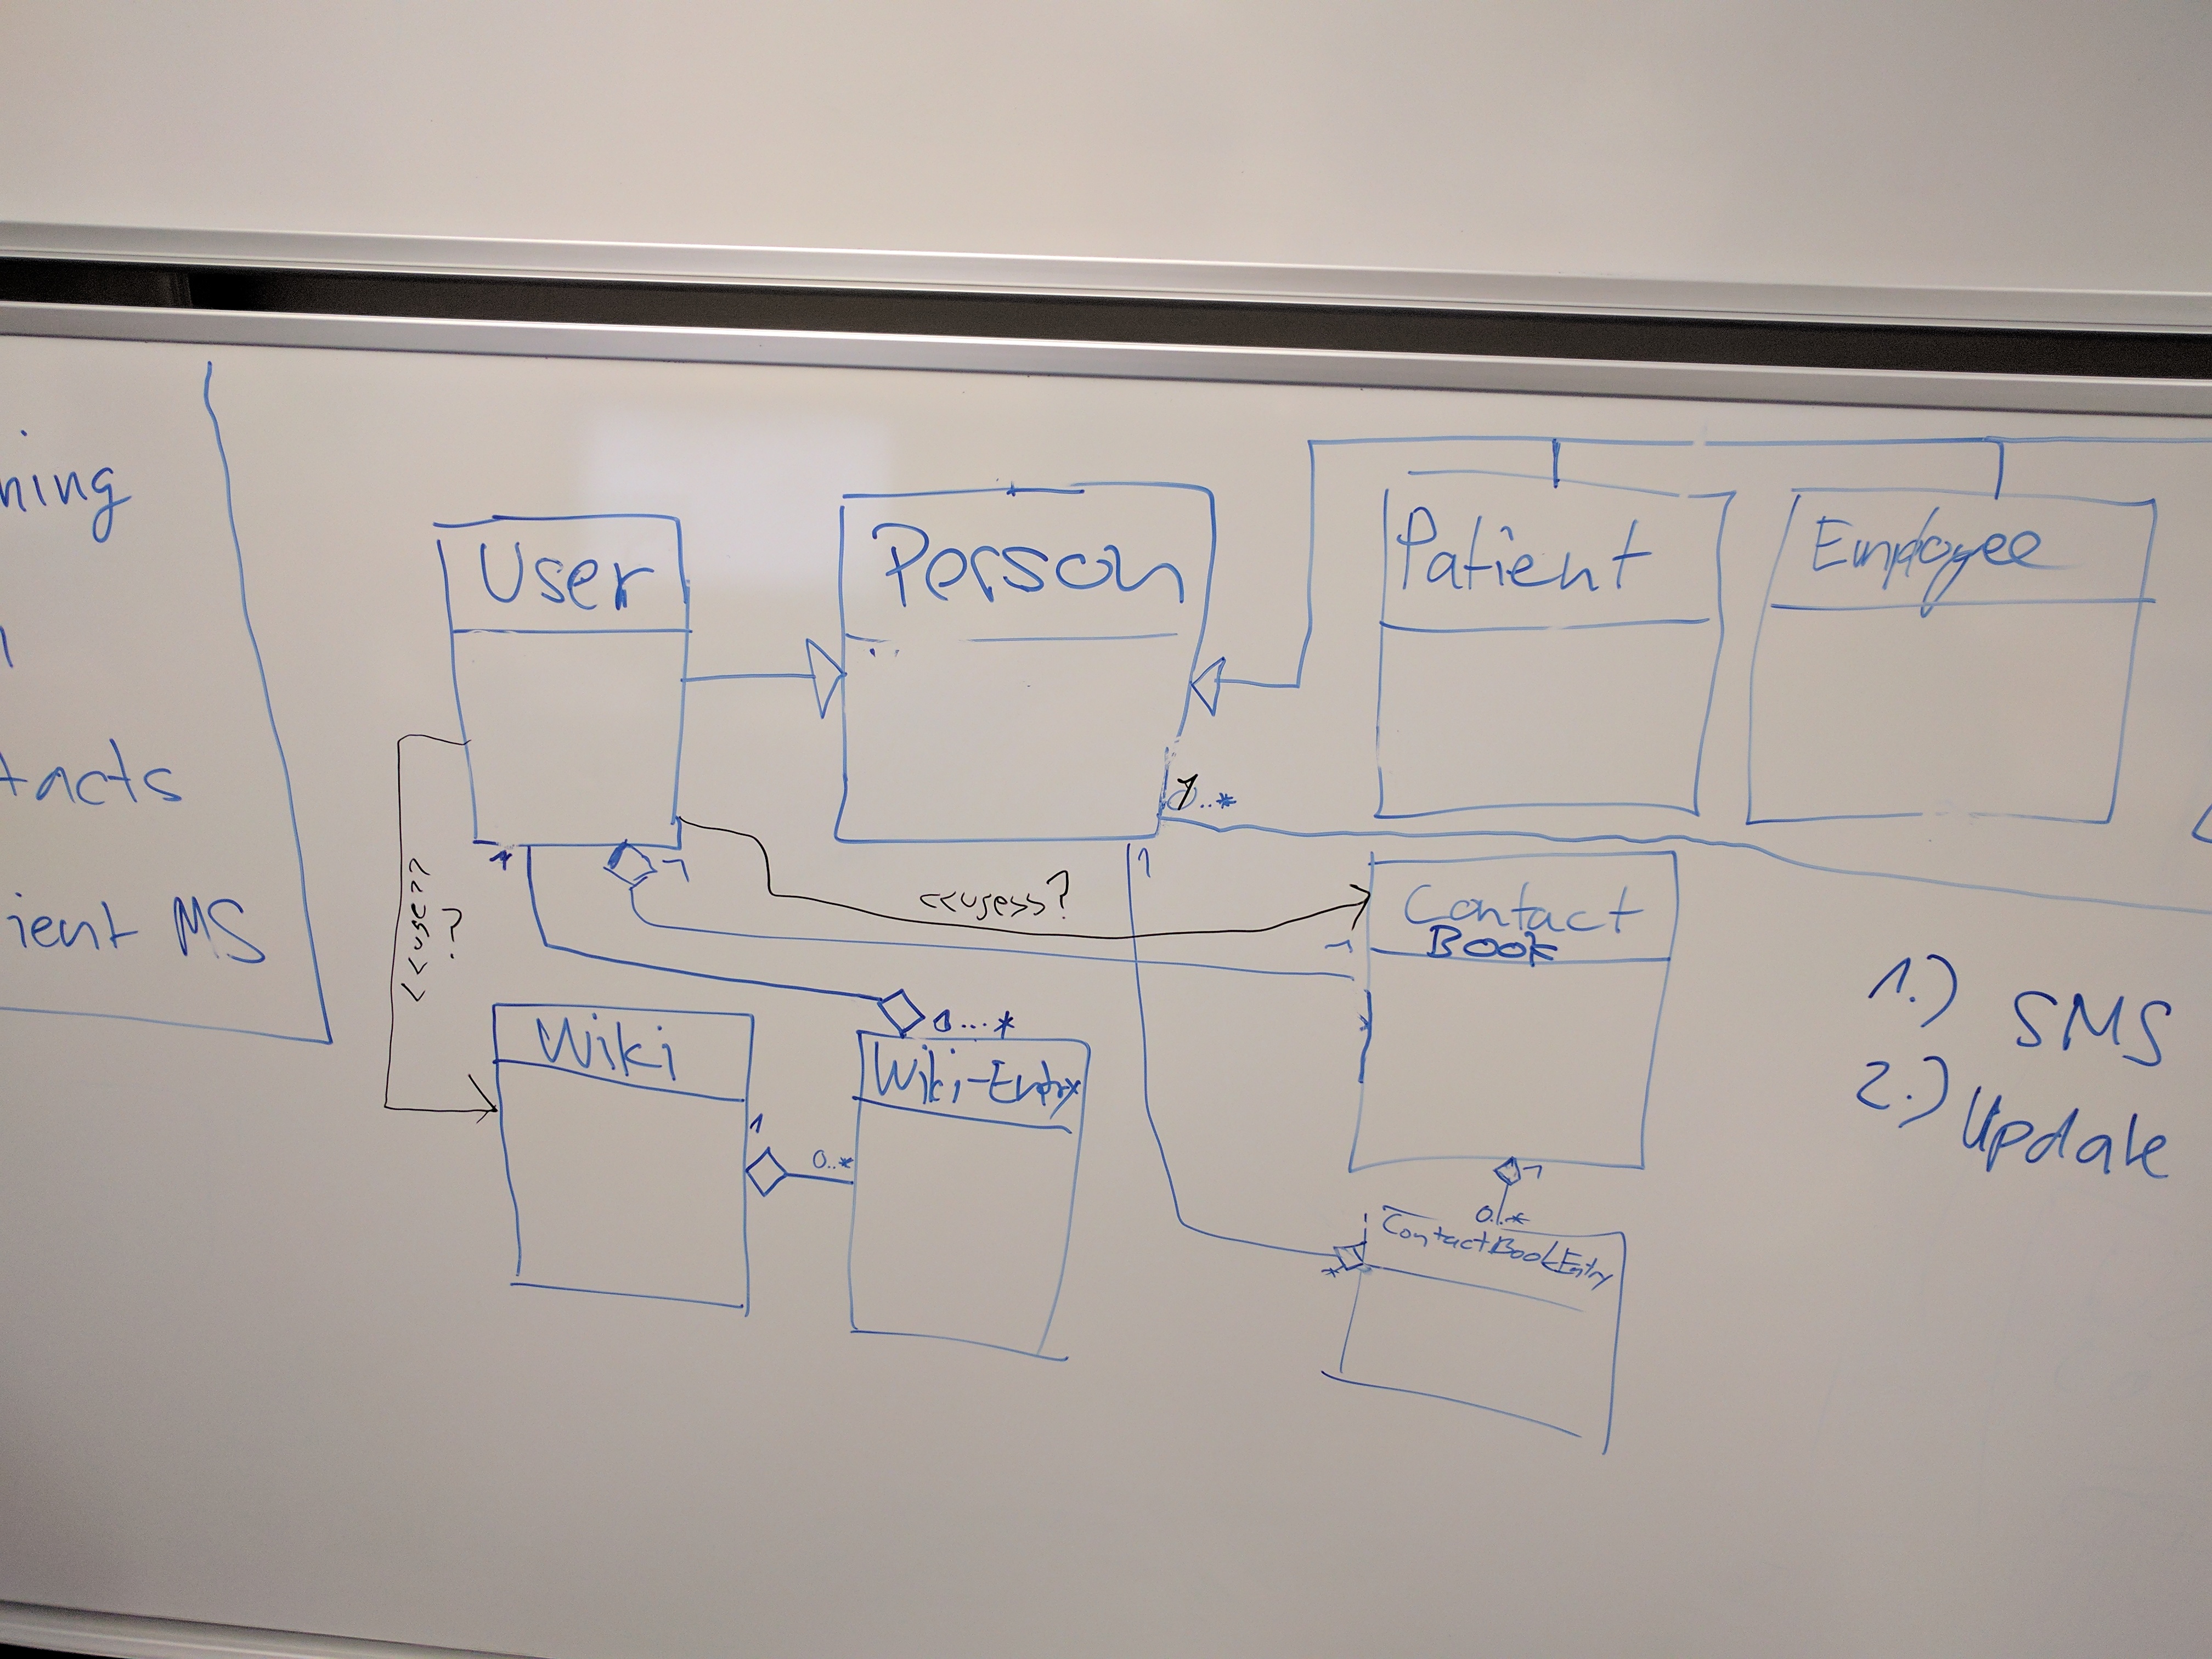 ning
tacts
ient MS
User
Person
Patient
Employee
..*
1
1
1
<<use>>
?
<<uses>>?
Contact
Book
1
0...*
Wiki
Wiki-Entry
1
0..*
1
0..*
ContactBookEntry
*
1.) SMS
2.) Update